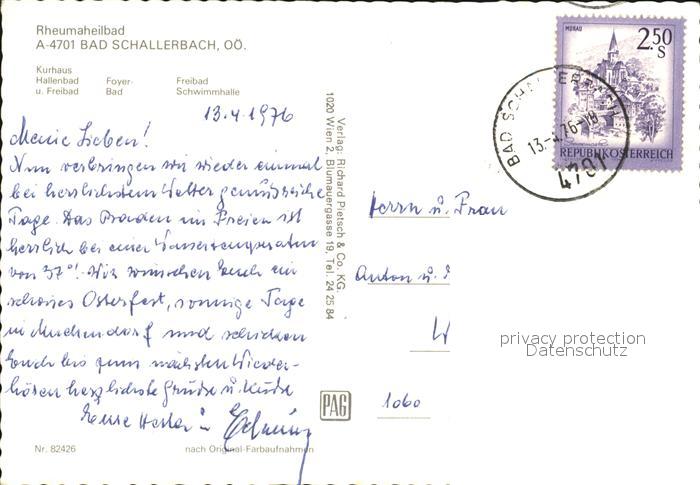 Rheumaheilbad
A-4701 BAD SCHALLERBACH, OÖ.
Kurhaus
Hallenbad
u. Freibad
Foyer-
Bad
Freibad
Schwimmhalle
13.4.1976
Meine Lieben!
Nun verbringen wir wieder einmal
bei herrlichstem Wetter genußreiche
Tage. Das Baden im Freien ist
herrlich bei einer Wassertemperatur
von 37°! Wir wünschen Euch ein
schönes Osterfest, sonnige Tage
in und schicken
Euch bis zum nächsten Wieder-
hören herzlichste Grüße u. Küsse
Eure
Nr. 82426
nach Original-Farbaufnahmen
Verlag: Richard Pietsch & Co. KG.
1020 Wien 2, Blumauergasse 19, Tel. 24 25 84
PAG
MURAU
2.50
S
REPUBLIK ÖSTERREICH
BAD SCHALLERBACH
13.-4.76-18
4701
Herrn u. Frau
Anton u.
W
1060
privacy protection
Datenschutz